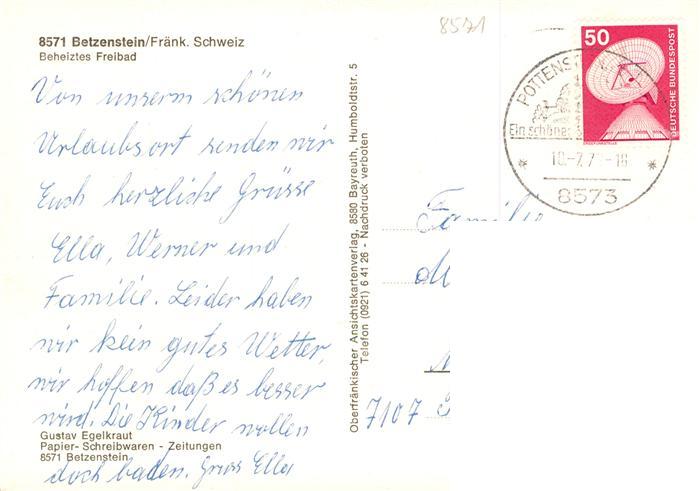 8571
8571 Betzenstein/Fränk. Schweiz
Beheiztes Freibad
Von unserm schönen
Urlaubsort senden wir
Euch herzliche Grüsse
Ella, Werner und
Familie. Leider haben
wir kein gutes Wetter,
wir hoffen daß es besser
wird. Die Kinder wollen
doch baden. Gruss Ella
Gustav Egelkraut
Papier- Schreibwaren - Zeitungen
8571 Betzenstein
Oberfränkischer Ansichtskartenverlag, 8580 Bayreuth, Humboldtstr. 5
Telefon (0921) 6 41 26 - Nachdruck verboten
50
DEUTSCHE BUNDESPOST
ERDEFUNKSTELLE
POTTENS
Ein schöner
10.-7.7 -18
8573
Familie
7107